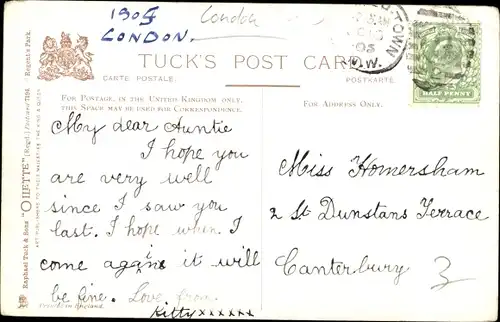 1904
LONDON.
London
TOWN
05
N.W.
HALF PENNY
TUCK'S POST CARD
CARTE POSTALE.
POSTKARTE.
FOR POSTAGE, IN THE UNITED KINGDOM ONLY,
THIS SPACE MAY BE USED FOR CORRESPONDENCE.
FOR ADDRESS ONLY.
My dear Auntie
I hope you
are very well
since I saw you
last. I hope when I
come again it will
be fine. Love from
Kitty xxxxxx
Printed in England.
Miss Homersham
2 St Dunstans Terrace
Canterbury
3
Regent's Park.
Raphael Tuck & Sons' "OILETTE" [Regd.] Postcard 7194
ART PUBLISHERS TO THEIR MAJESTIES THE KING & QUEEN